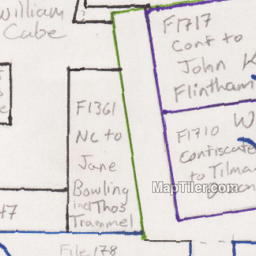 William
Cabe
F1717
Conf to
John
Flintham
F1361
NC to
Jane
Bowling
Thos
Trammel
F1710 W
Confiscate
to Tilma
MapTiler.com
File 178